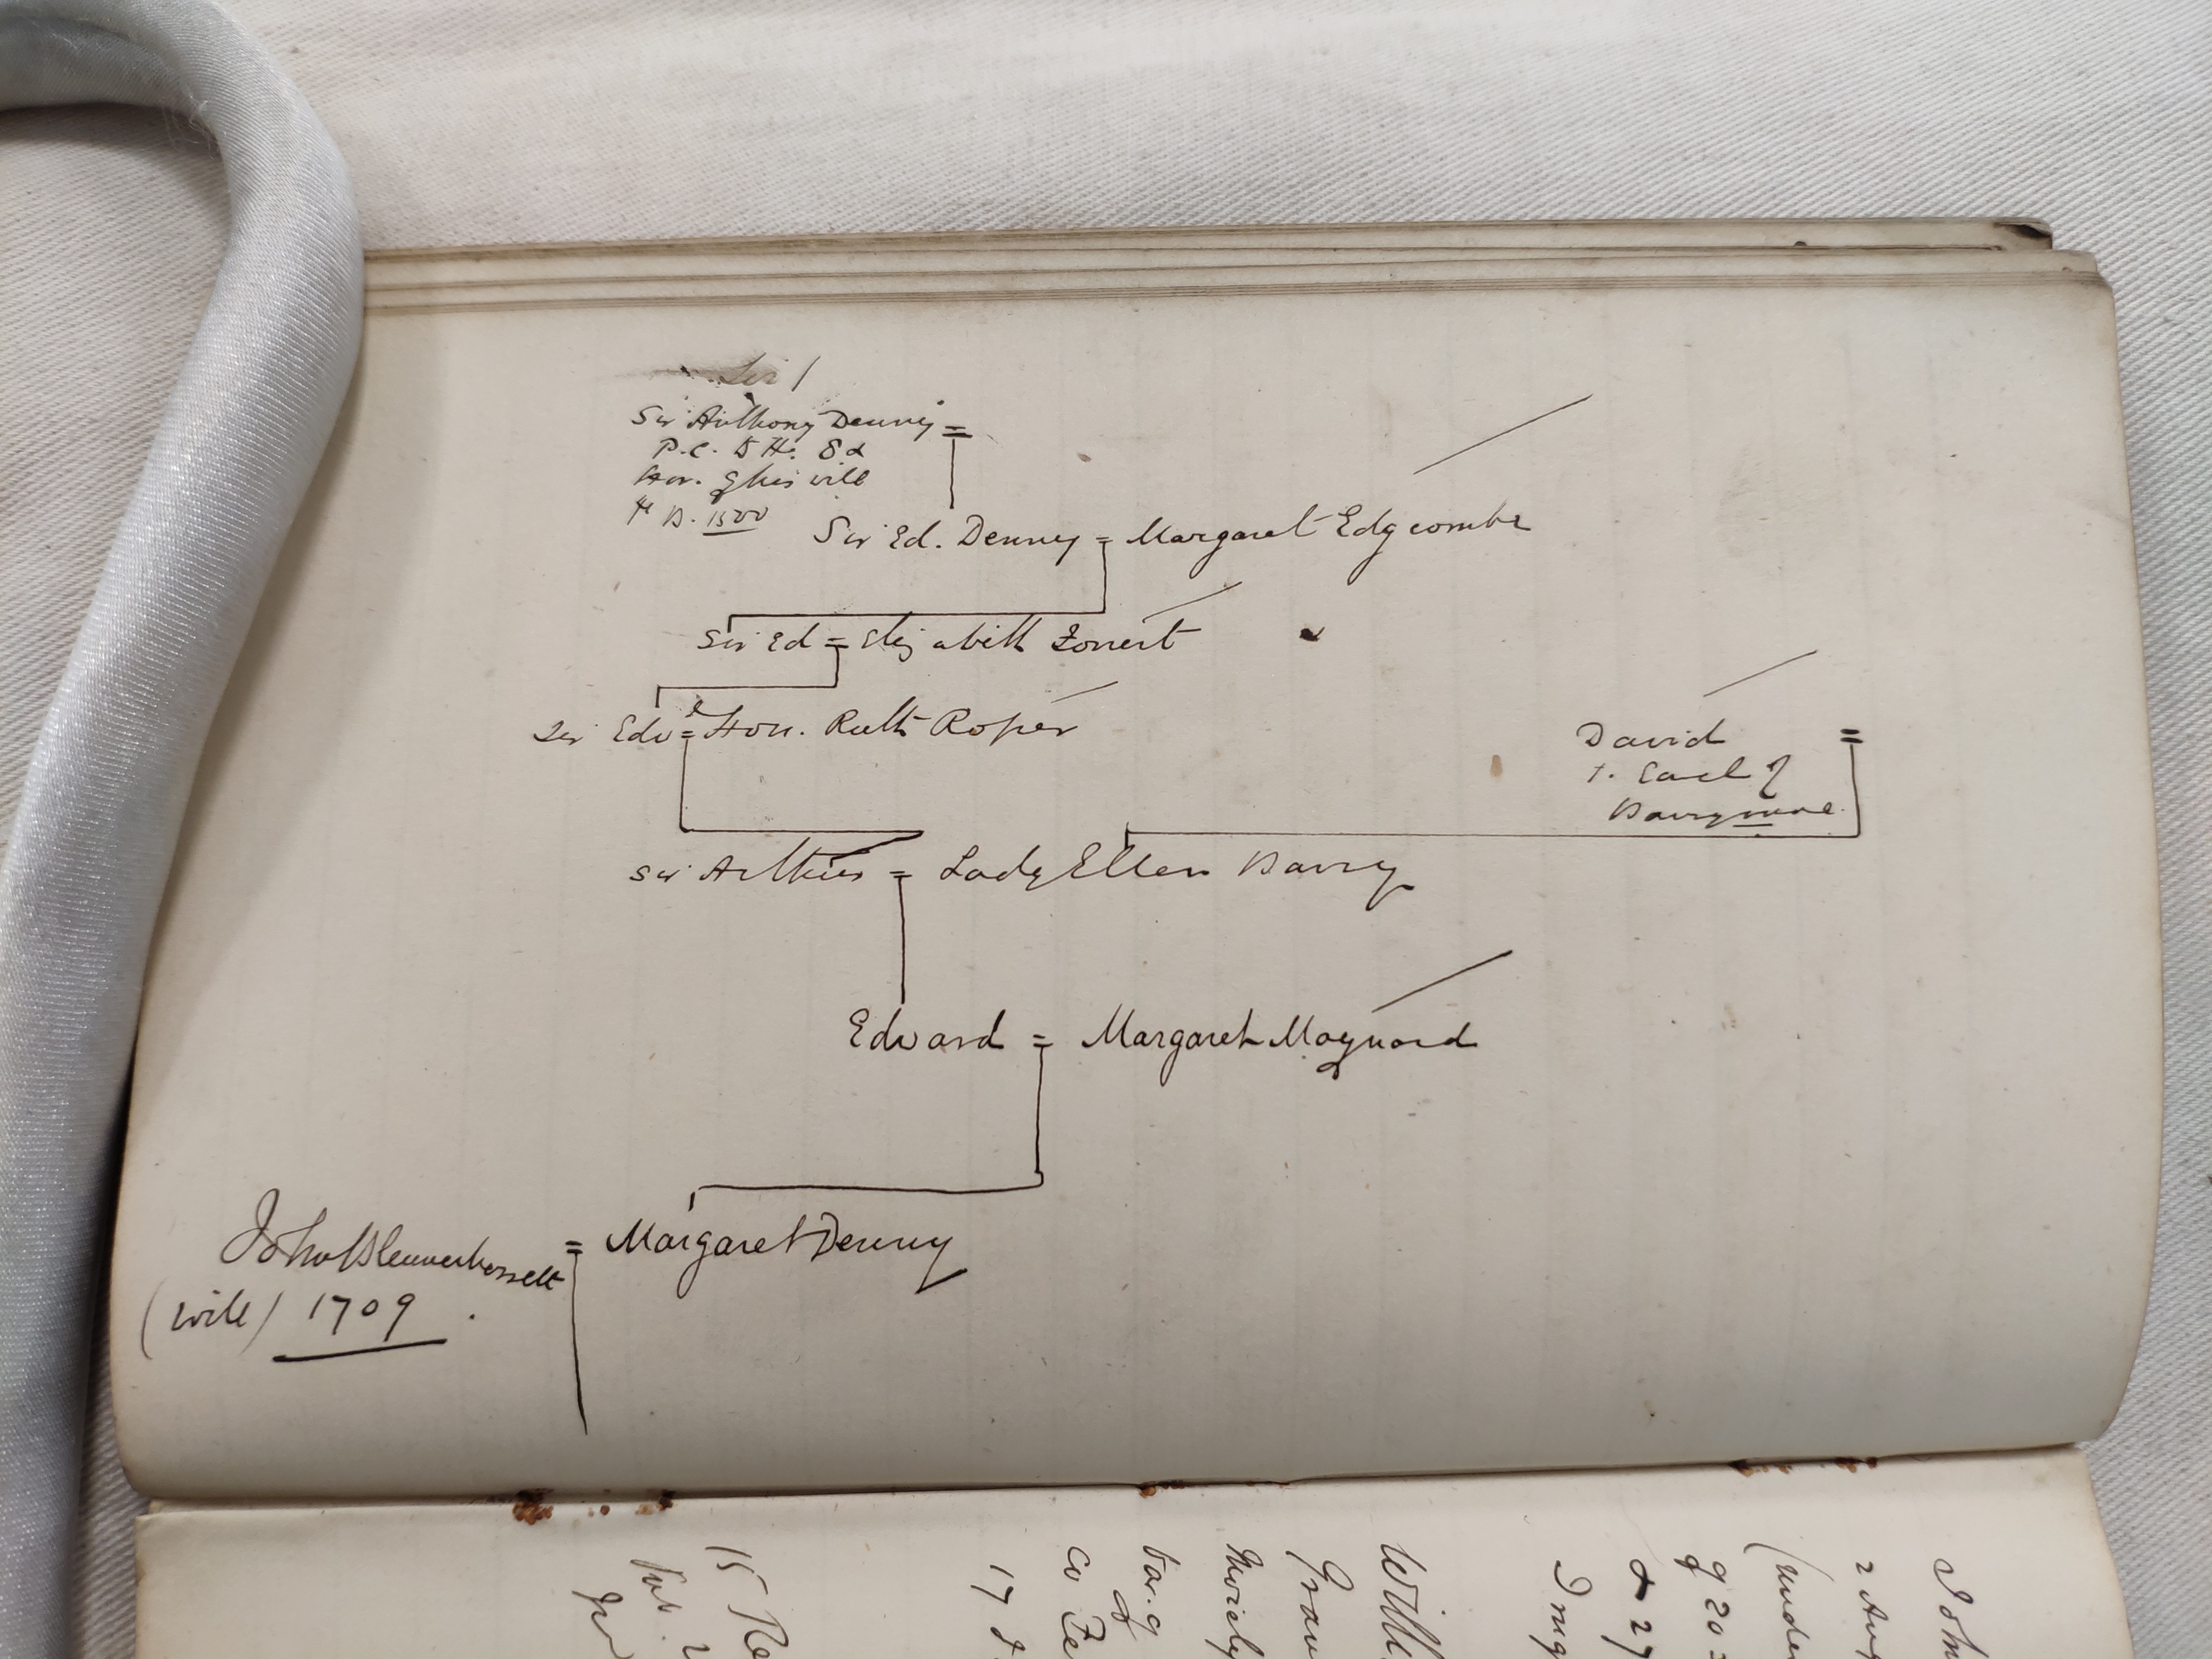 Sir /
Sir Anthony Denny =
P.C. to H. 8 &
&or. of his will
B. 1500
Sir Ed. Denny = Margaret Edgcombe
Sir Ed = Elizabeth
Sir Edw = Hon. Ruth Roper
David =
1. Earl of
Barrymore
Sir Arthur = Lady Ellen Barry
Edward = Margaret Maynard
John Blennerhassett = Margaret Denny
(will) 1709.
John
2 Aug
(unde
of 20
& 27
Will
Gran
Moiety
Bar. of
Co
17
15